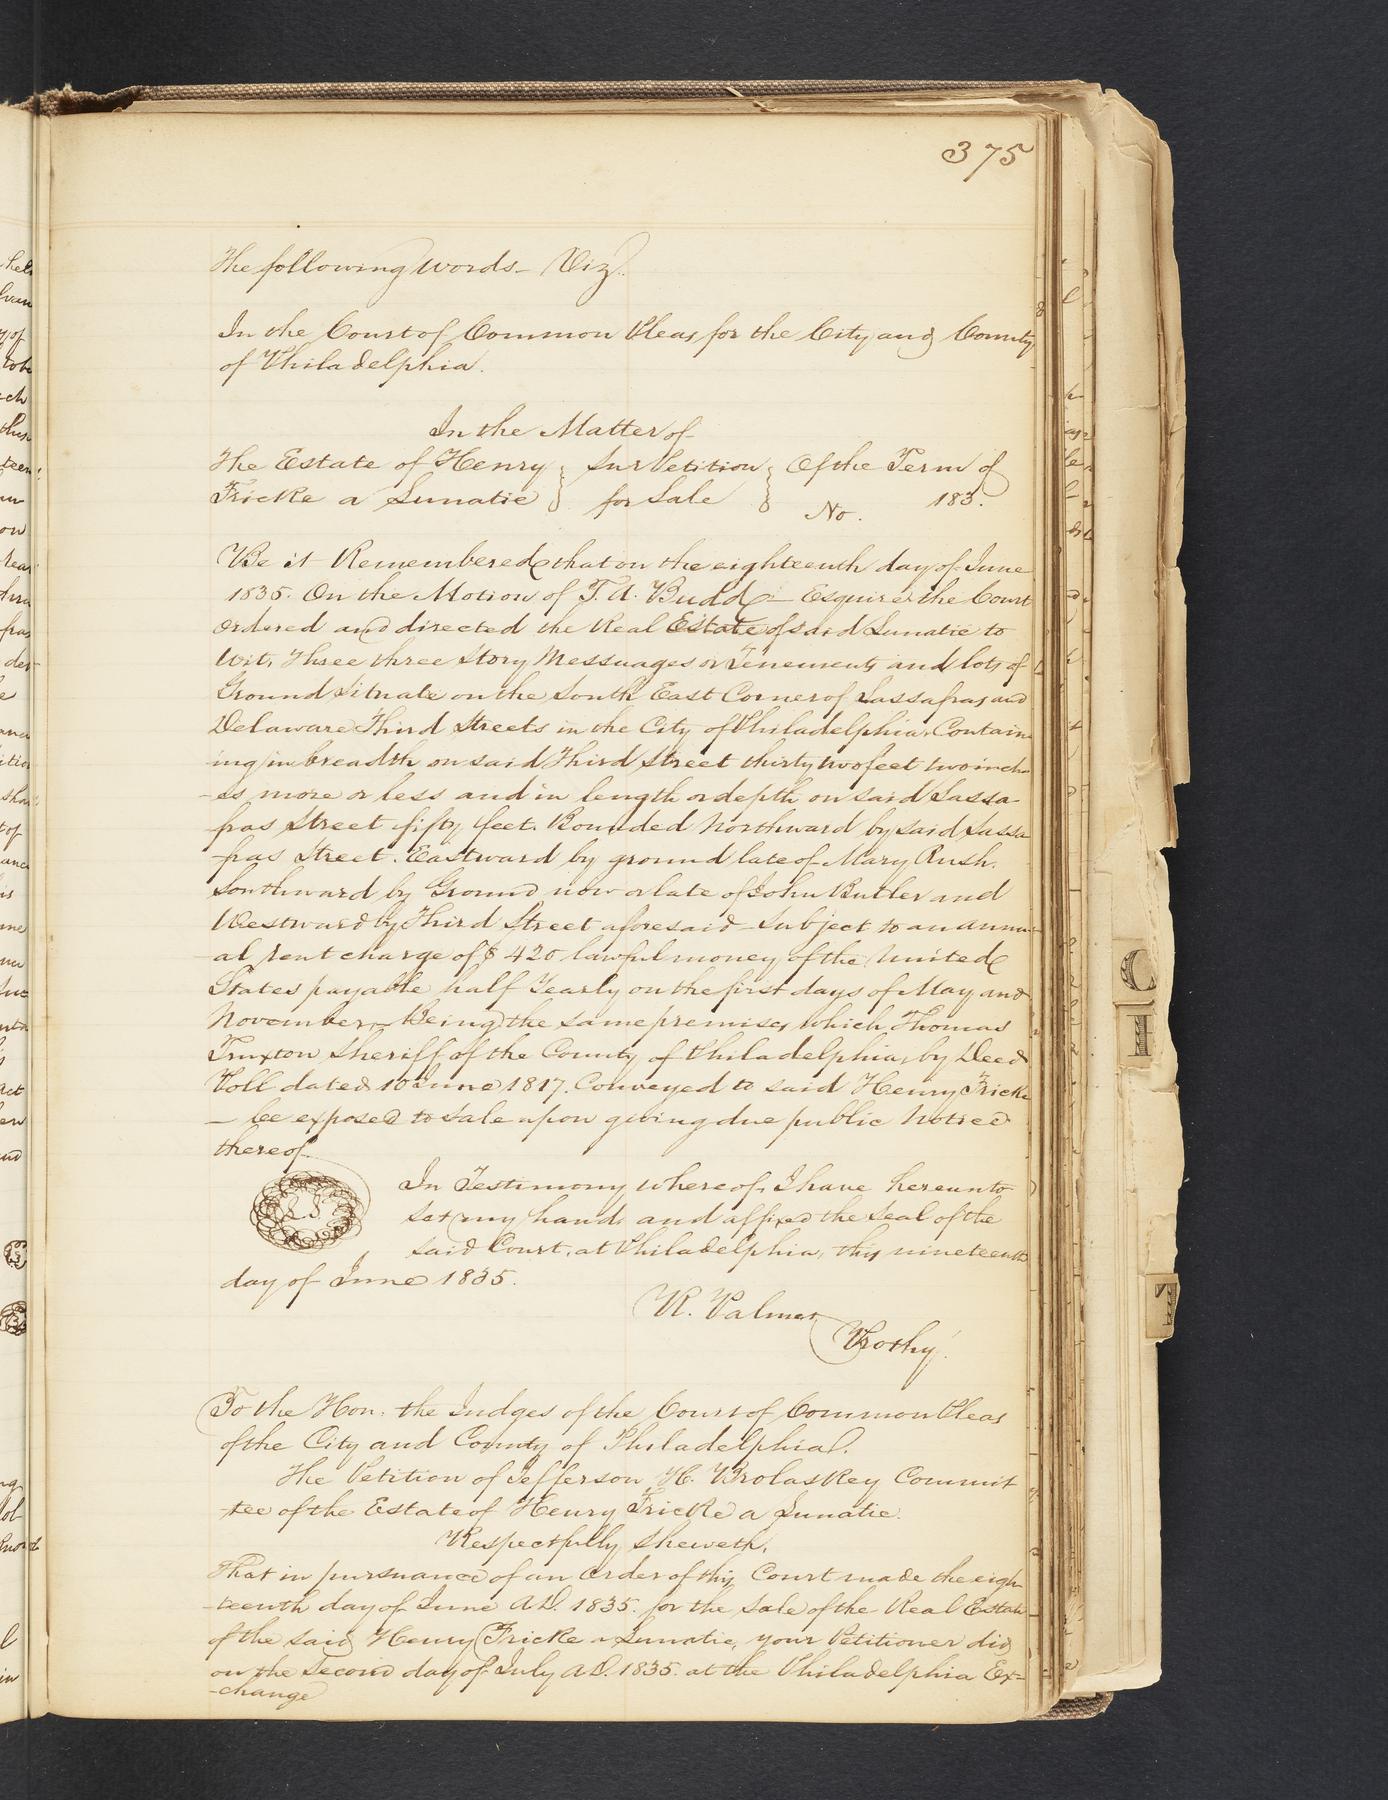 375
The following words – Viz.
In the Court of Common Pleas for the City and County
of Philadelphia.
In the Matter of
The Estate of Henry } Sur Petition } Of the Term of
Fricke a Lunatic } for Sale } No. 183 .
Be it Remembered that on the eighteenth day of June
1835. On the Motion of T. A. Budd – Esquire the Court
Ordered and directed the Real Estate of said Lunatic to
Wit, Three three Story Messuages or Tenements and lots of
Ground Situate on the South East Corner of Sassafras and
Delaware Third Streets in the City of Philadelphia Contain
ing in breadth on said Third Street thirty two feet two inch
-es more or less and in length or depth on said Sassa
fras Street fifty feet. Bounded Northward by said Sassa
fras Street. Eastward by ground late of Mary Rush.
Southward by Ground now or late of John Butler and
Westward by Third Street aforesaid – Subject to an annu-
al rent charge of $ 420 lawful money of the United
States payable half Yearly on the first days of May and
November – Being the same premises which Thomas
Truxton Sheriff of the County of Philadelphia, by Deed
Poll dated 10 June 1817. Conveyed to said Henry Fricke
– be exposed to Sale upon giving due public Notice
thereof
LS
In Testimony whereof, I have hereunto
Set my hand, and affixed the Seal of the
said Court, at Philadelphia, this nineteenth
day of June 1835.
R. Palmer
Prothy.
To the Hon. the Judges of the Court of Common Pleas
of the City and County of Philadelphia.
The Petition of Jefferson H. Brolaskey Commit
tee of the Estate of Henry Fricke a Lunatic.
Respectfully Sheweth,
That in pursuance of an Order of this Court made the eigh
-teenth day of June A.D. 1835. for the Sale of the Real Estate
of the said Henry Fricke a Lunatic, your Petitioner did
on the Second day of July A.D. 1835. at the Philadelphia Ex-
-change
C
I
T